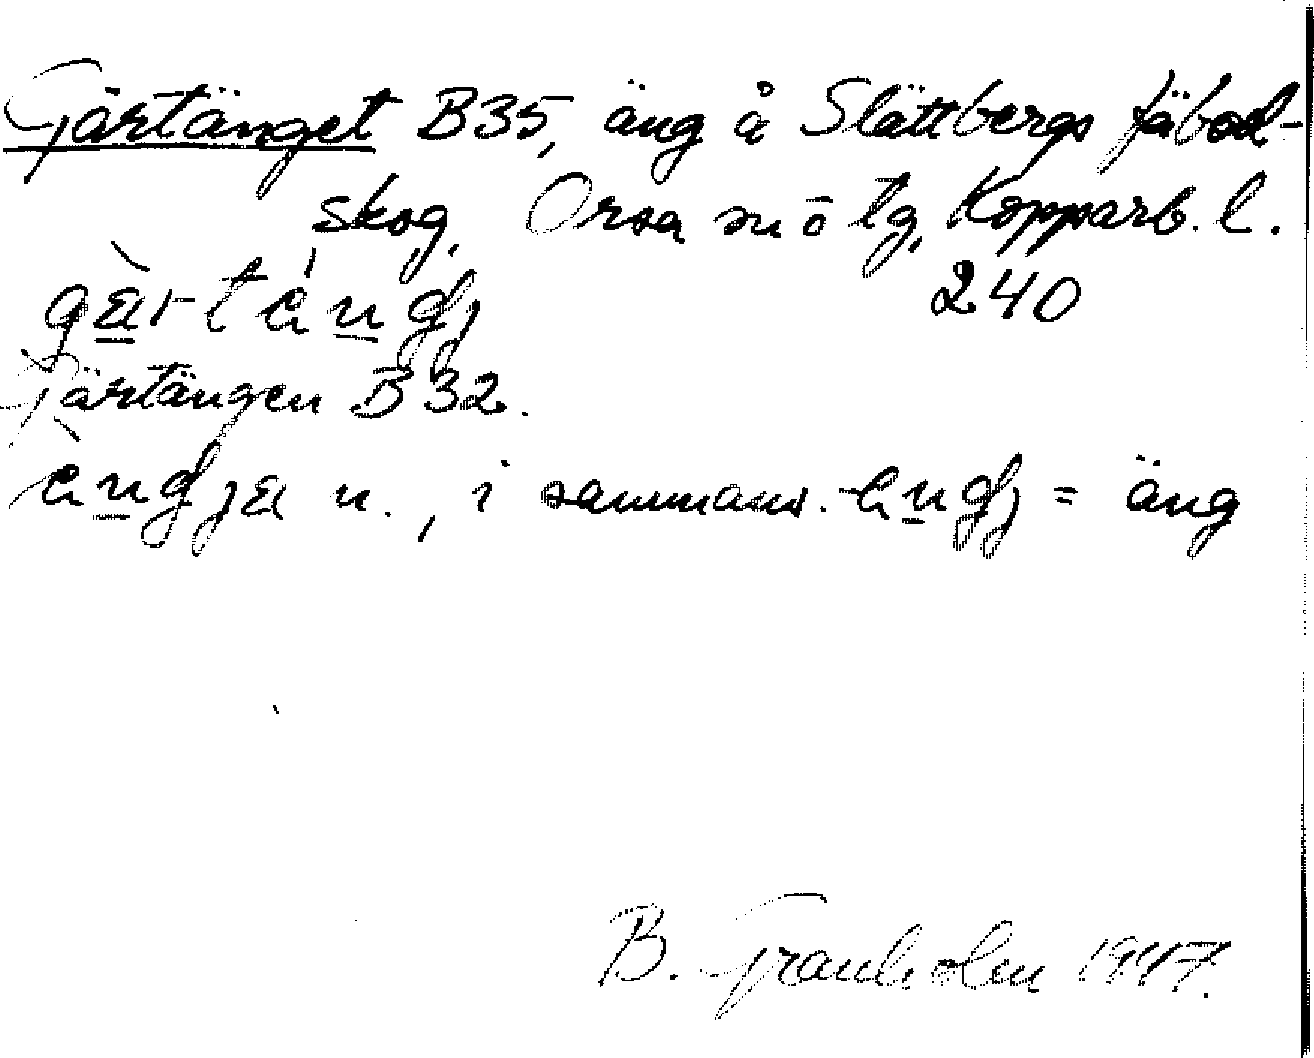 Gärtänget B35, äng å Slättbergs fäbod-
skog. Orsa sn ö tg, Kopparb. l.
240
Gärtängen B32.
n., i sammans. = äng
B. Granholm 1947.